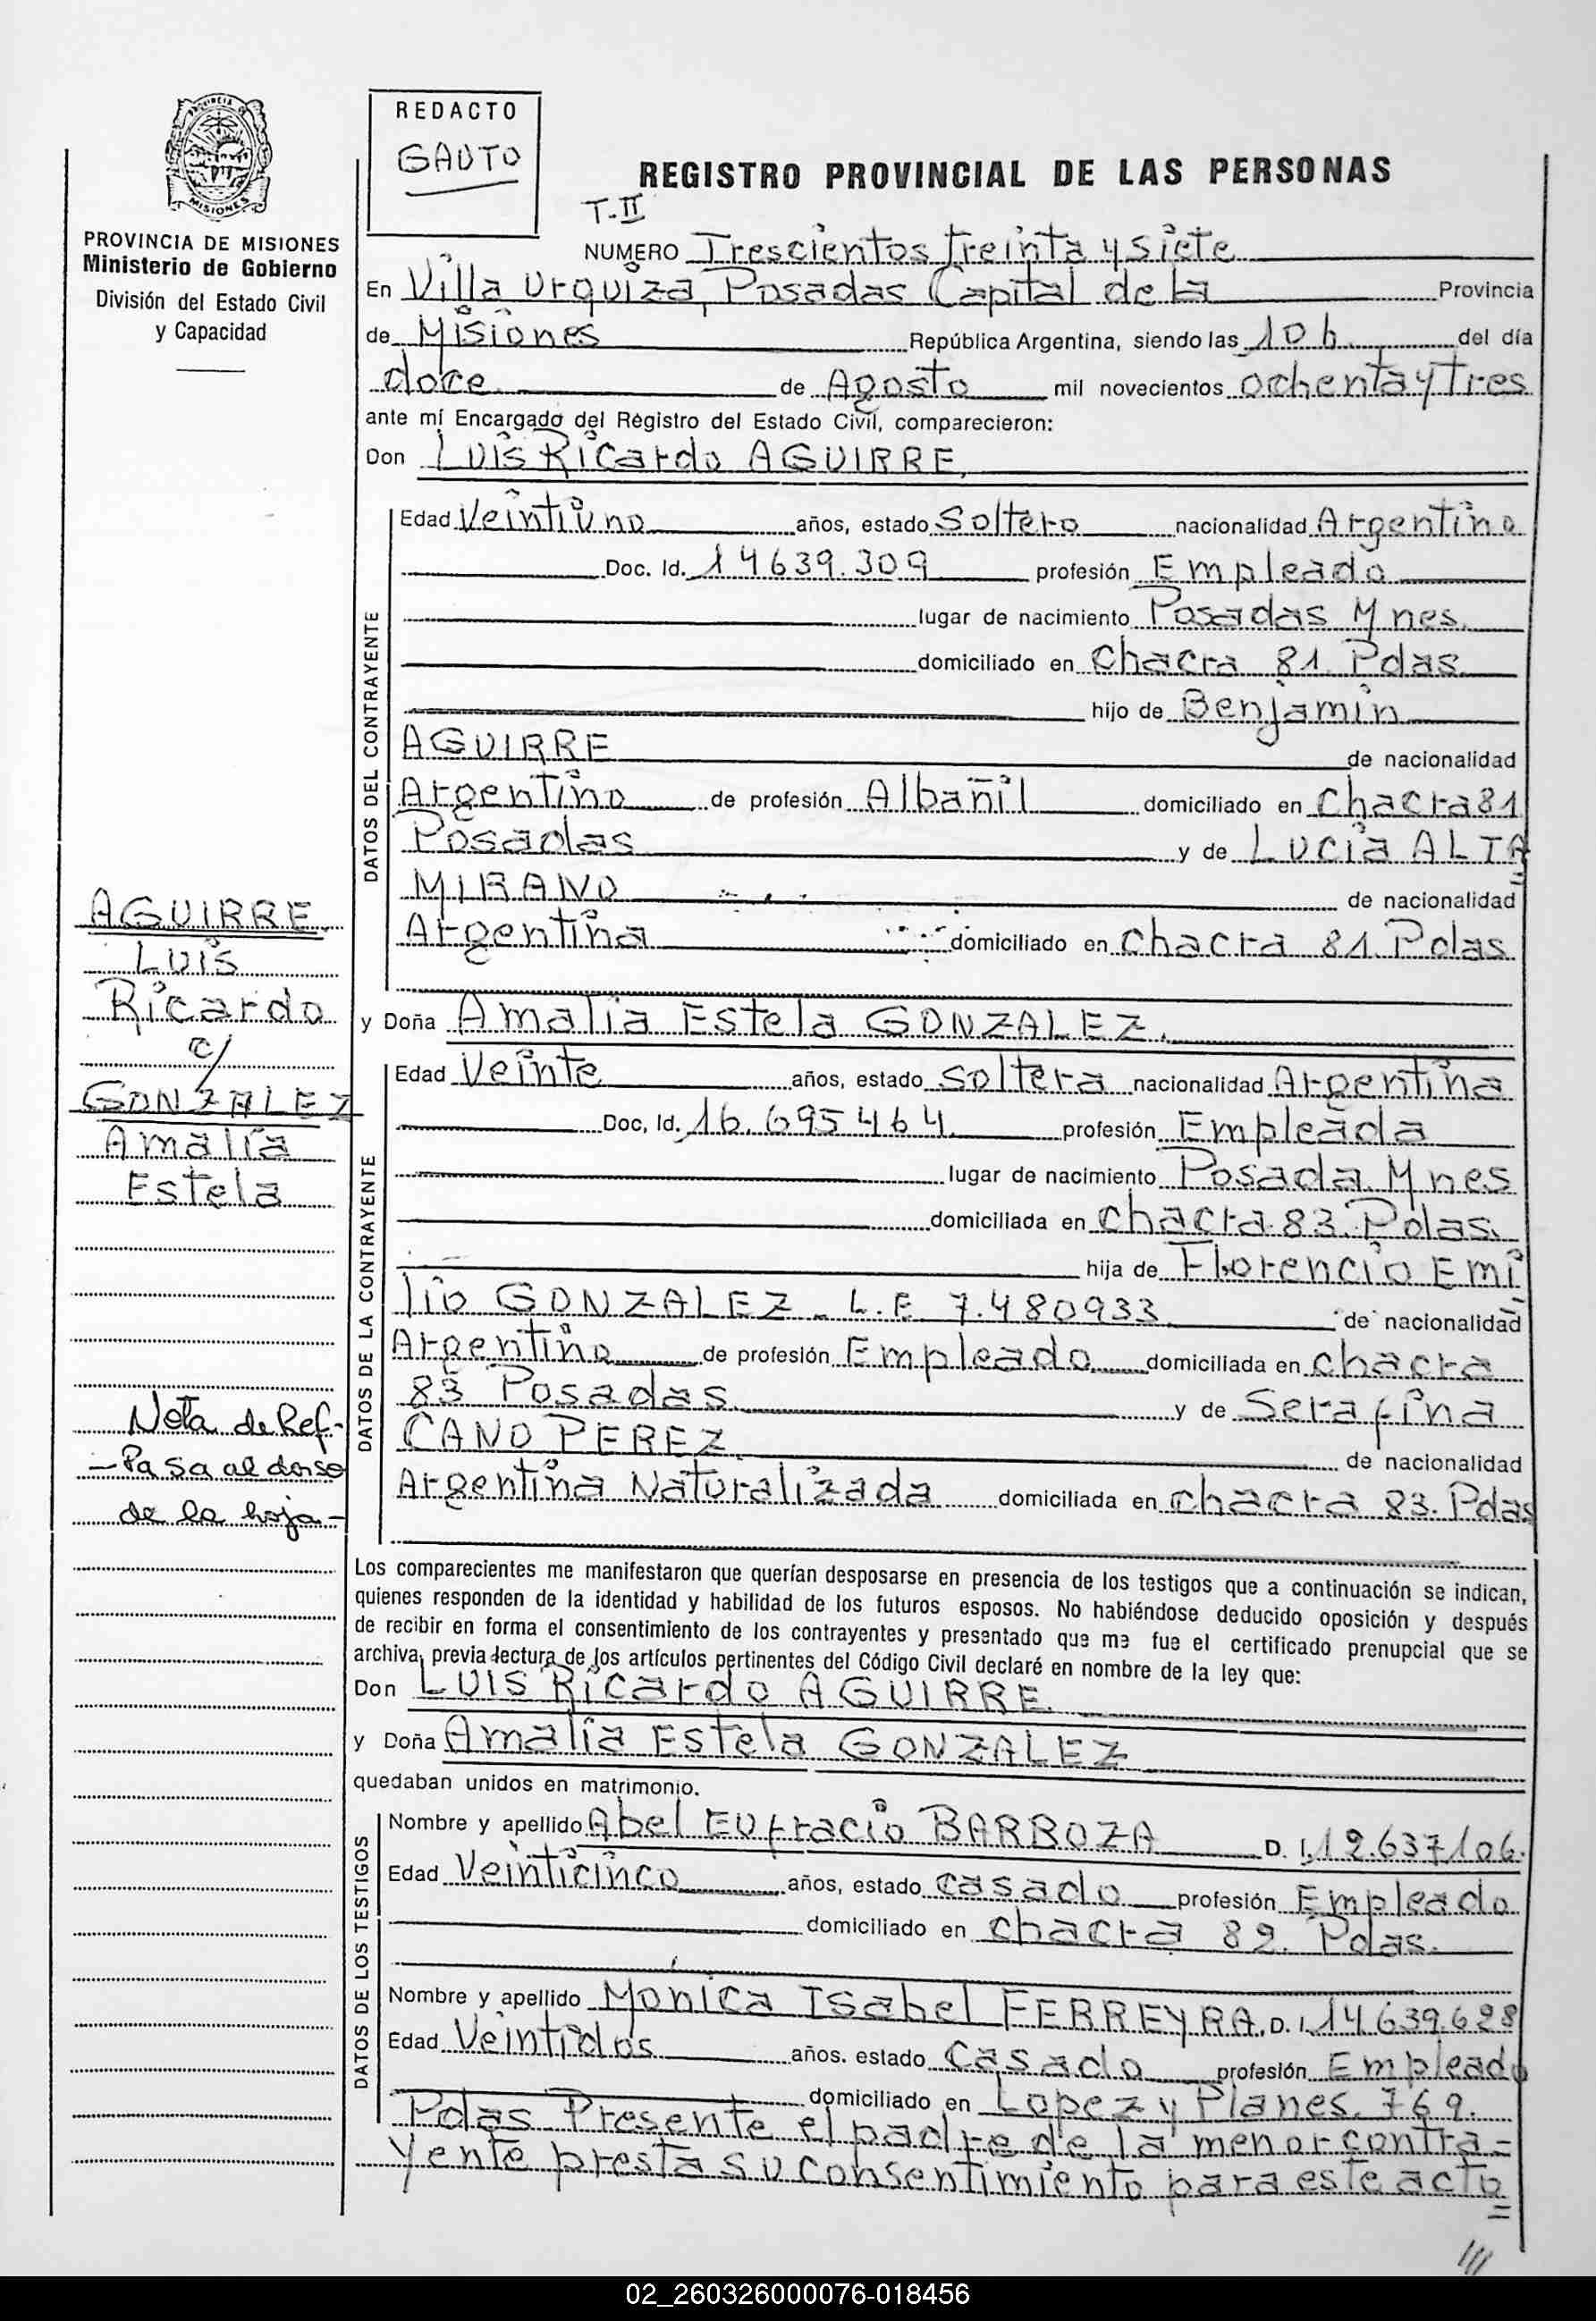 REDACTO
GAUTO
REGISTRO PROVINCIAL DE LAS PERSONAS
T-II
NUMERO Trescientos treinta y siete
PROVINCIA DE MISIONES
Ministerio de Gobierno
División del Estado Civil
y Capacidad
En Villa Urquiza, Posadas Capital de la Provincia
de Misiones República Argentina, siendo las 10 h. del día
doce de Agosto mil novecientos ochenta y tres
ante mí Encargado del Registro del Estado Civil, comparecieron:
Don Luis Ricardo AGUIRRE
DATOS DEL CONTRAYENTE
Edad Veintiuno años, estado Soltero nacionalidad Argentino
Doc. Id. 14639.309 profesión Empleado
lugar de nacimiento Posadas Mnes.
domiciliado en Chacra 81 Pdas.
hijo de Benjamin
AGUIRRE de nacionalidad
Argentino de profesión Albañil domiciliado en Chacra 81
Posadas y de Lucia ALTA=
MIRANO de nacionalidad
Argentina domiciliado en Chacra 81 Pdas.
AGUIRRE
Luis
Ricardo
c/
GONZALEZ
Amalia
Estela
y Doña Amalia Estela GONZALEZ.
DATOS DE LA CONTRAYENTE
Edad Veinte años, estado Soltera nacionalidad Argentina
Doc, Id. 16.695464. profesión Empleada
lugar de nacimiento Posada. Mnes
domiciliada en Chacra 83. Pdas.
hija de Florencio Emi=
lio GONZALEZ - L.E 7.480933 de nacionalidad
Argentino de profesión Empleado domiciliada en Chacra
83 Posadas y de Serafina
CANO PEREZ de nacionalidad
Argentina Naturalizada domiciliada en Chacra 83. Pdas
Nota de Ref-
- Pasa al dorso
de la hoja -
Los comparecientes me manifestaron que querían desposarse en presencia de los testigos que a continuación se indican,
quienes responden de la identidad y habilidad de los futuros esposos. No habiéndose deducido oposición y después
de recibir en forma el consentimiento de los contrayentes y presentado que me fue el certificado prenupcial que se
archiva, previa lectura de los artículos pertinentes del Código Civil declaré en nombre de la ley que:
Don Luis Ricardo AGUIRRE
y Doña Amalia Estela GONZALEZ
quedaban unidos en matrimonio.
DATOS DE LOS TESTIGOS
Nombre y apellido Abel Eufracio BARROZA D. I. 12.637106.
Edad Veinticinco años, estado Casado profesión Empleado
domiciliado en Chacra 82. Pdas.
Nombre y apellido Monica Isabel FERREYRA. D. I. 14.639.628
Edad Veintidos años. estado Casado profesión Empleado
domiciliado en Lopez y Planes. 769.
Pdas Presente el padre de la menor contra=
yente presta su consentimiento para este acto
02_260326000076-018456